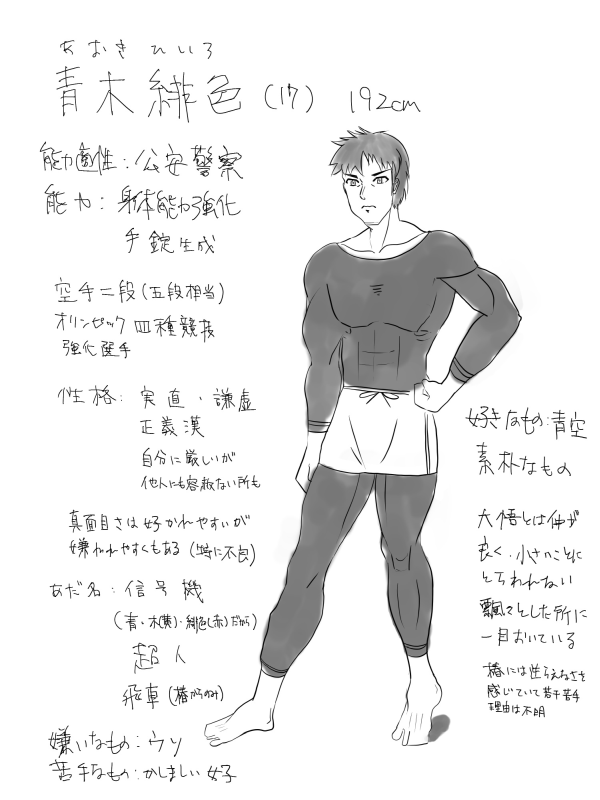 あおき ひいろ
青木 緋色 (17) 192cm
能力適性：公安警察
能力：身体能力強化
手錠生成
空手二段(五段相当)
オリンピック四種競技
強化選手
性格：実直・謙虚
正義漢
自分に厳しいが
他人にも容赦ない所も
真面目さは好かれやすいが
嫌われやすくもある(特に不良)
あだ名：信号機
(青・木(黄)・緋色(赤)だから)
超人
飛車(椿からのみ)
嫌いなもの：ウソ
苦手なもの：かしましい女子
好きなもの：青空
素朴なもの
大悟とは仲が
良く、小さいことに
とらわれない
飄々とした所に
一目おいている
椿には逆らえなさを
感じていて若干苦手
理由は不明